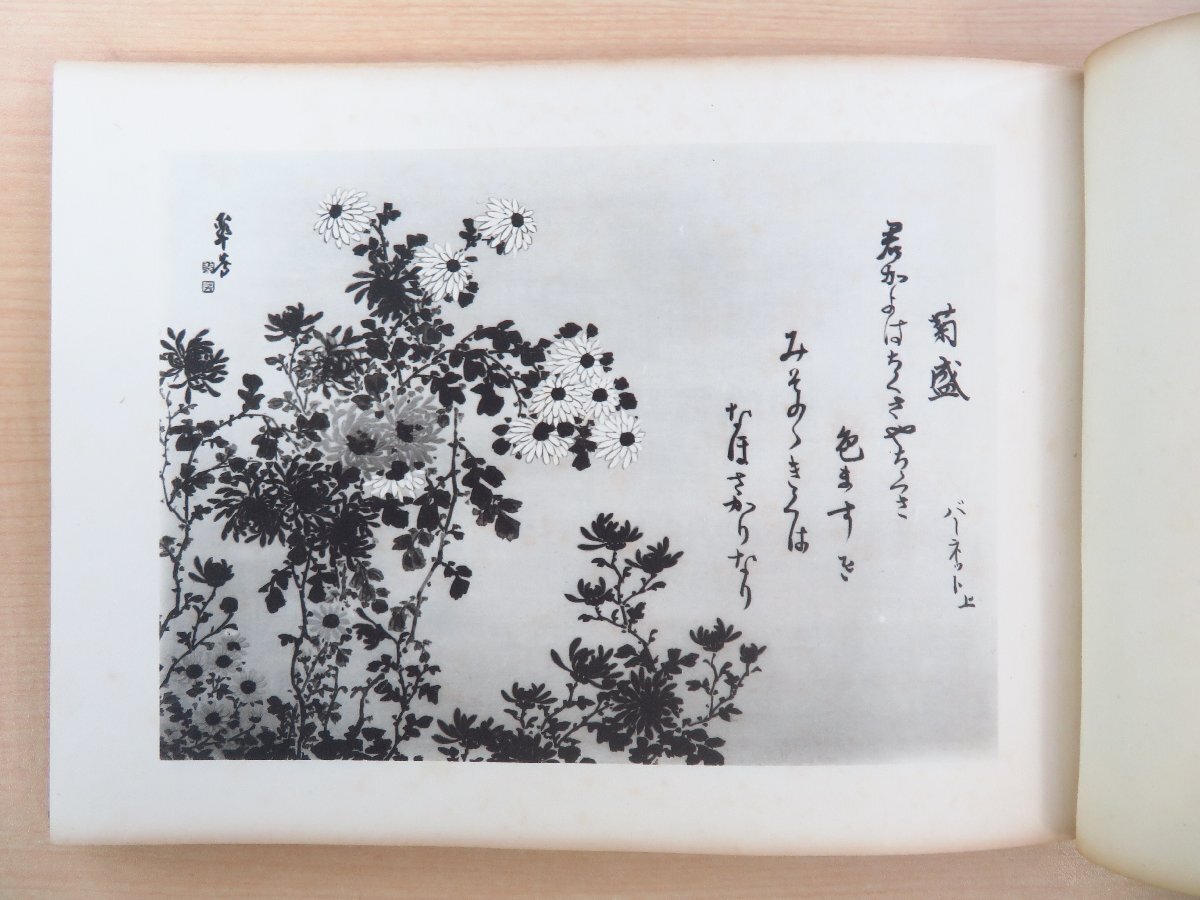 菊盛
バーネット上
君かよはちくさやちくさ
色ますそ
みそのゝきくは
なほさかりなり
翠嵩